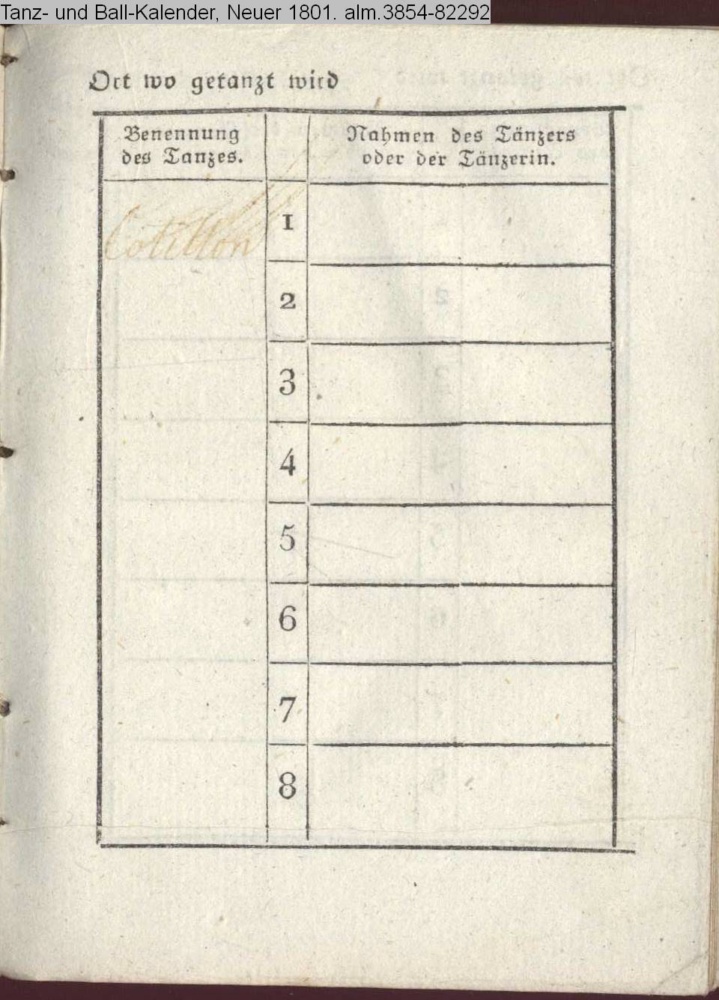 Tanz- und Ball-Kalender, Neuer 1801. alm.3854-82292
Ort wo getanzt wird
Benennung
des Tanzes.
Nahmen des Tänzers
oder der Tänzerin.
Cotillon
1
2
3
4
5
6
7
8